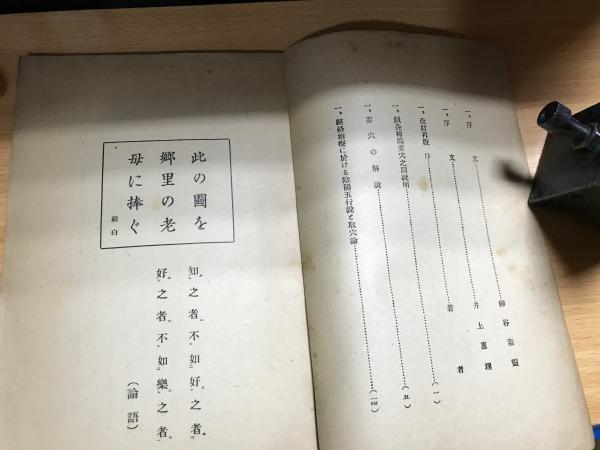 一、序 文……柳谷素靈
一、序 文……井上惠理
一、改訂再版 序……著者
一、鍼灸補瀉要穴之圖說明……(一)
一、要穴の解說……(五)
一、經絡治療に於ける陰陽五行說と取穴論……(一四)
此の圖を
郷里の老
母に捧ぐ
知之者不如好之者
好之者不如樂之者
(論語)